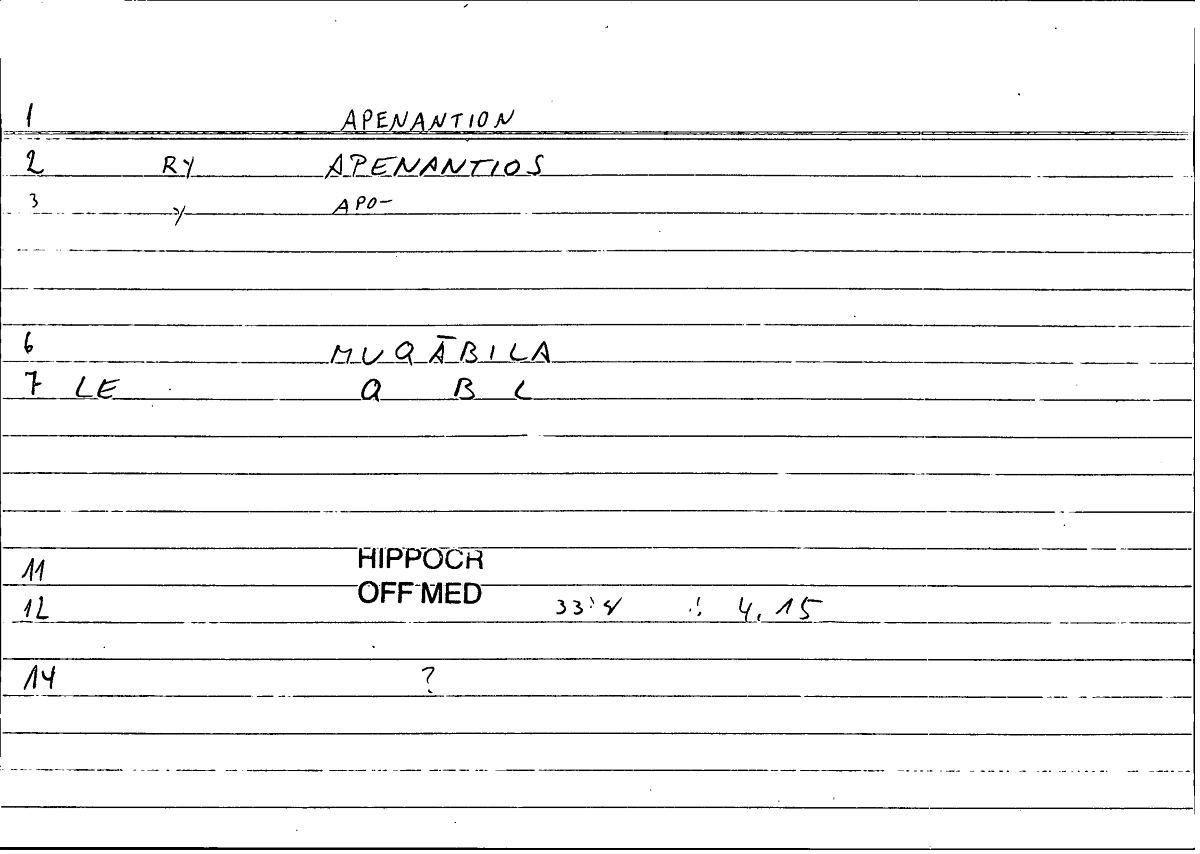 1 APENANTION
2 RY APENANTIOS
3 y APO-
6 MUQĀBILA
7 LE Q B L
11 HIPPOCR
12 OFF MED 33:8 : 4,15
14 ?